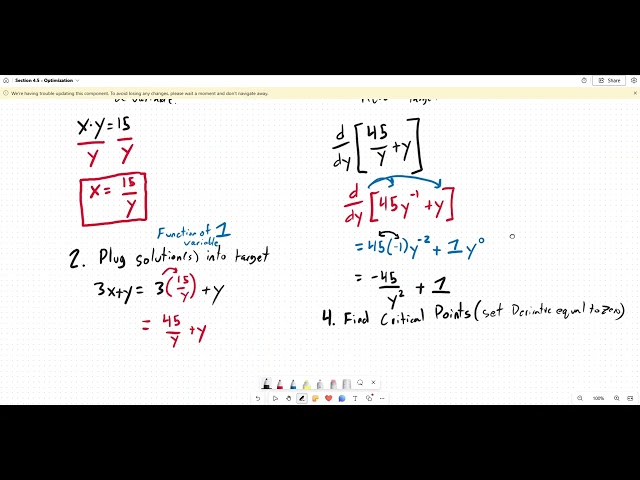 Section 4.5 - Optimization
Share
We're having trouble updating this component. To avoid losing any changes, please wait a moment and don't navigate away.
x·y = 15
y y
x = 15/y
Function of 1
variable
2. Plug solution(s) into target
3x+y = 3(15/y) + y
= 45/y + y
d/dy [45/y + y]
d/dy [45y^-1 + y]
= 45(-1)y^-2 + 1y^0
= -45/y^2 + 1
4. Find Critical Points (set Derivative equal to zero)
100%